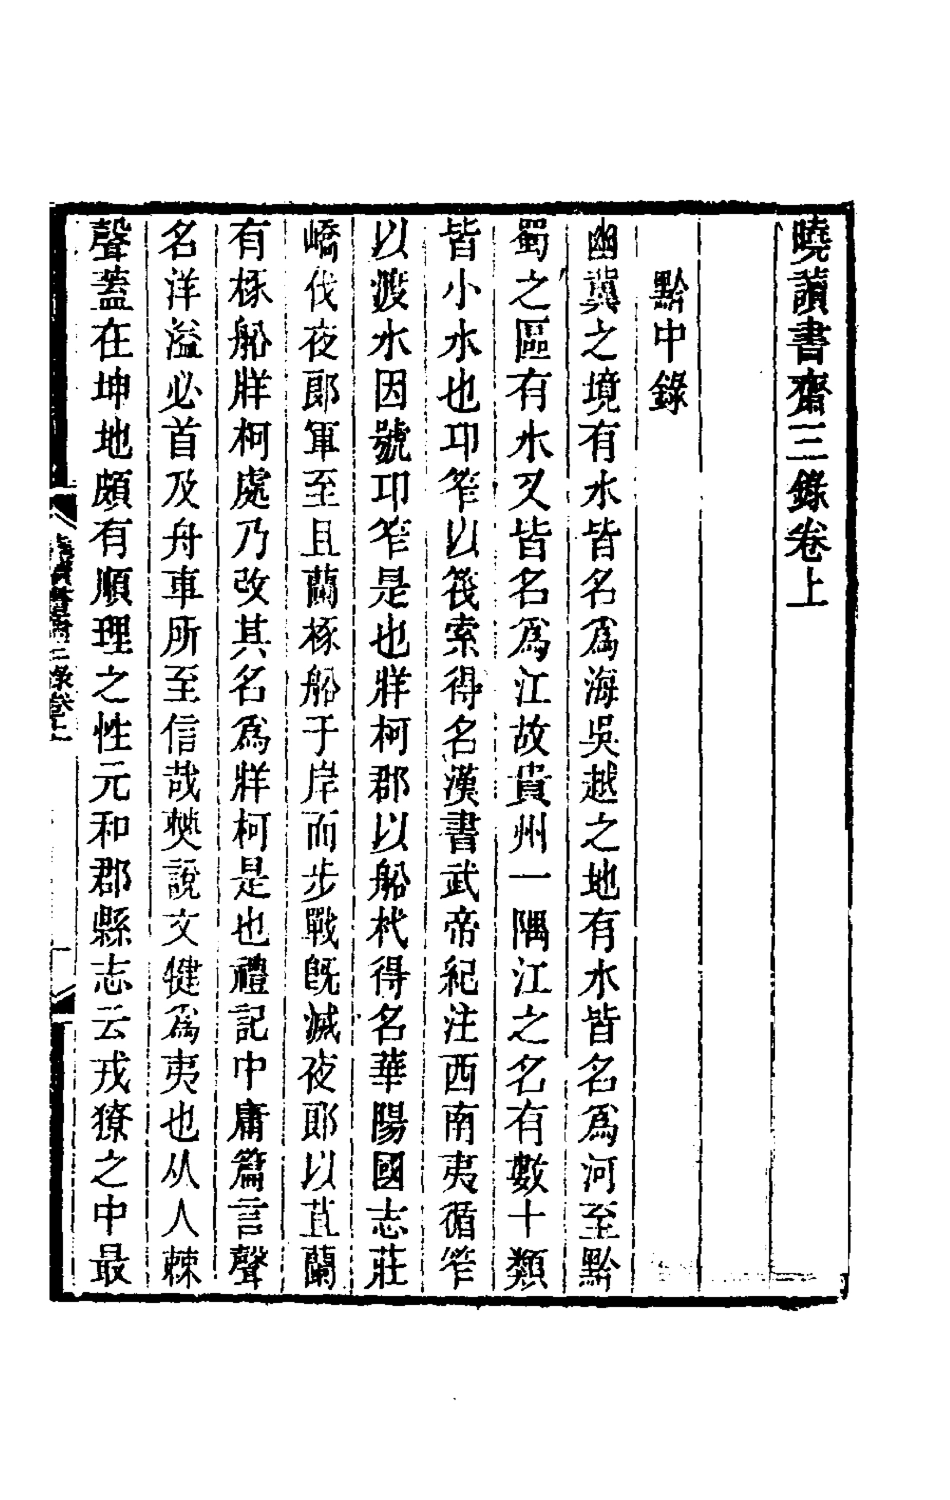 曉讀書齋三錄卷上
黔中錄
幽冀之境有水皆名爲海吳越之地有水皆名爲河至黔
蜀之區有水又皆名爲江故貴州一隅江之名有數十類
皆小水也卭笮以筏索得名漢書武帝紀注西南夷循笮
以渡水因號卭笮是也牂柯郡以船杙得名華陽國志莊
蹻伐夜郎軍至且蘭椓船于岸而步戰旣滅夜郎以且蘭
有椓船牂柯處乃改其名爲牂柯是也禮記中庸篇言聲
名洋溢必首及舟車所至信哉僰說文犍爲夷也从人棘
聲蓋在坤地頗有順理之性元和郡縣志云戎獠之中最
曉讀書齋三錄卷上
一